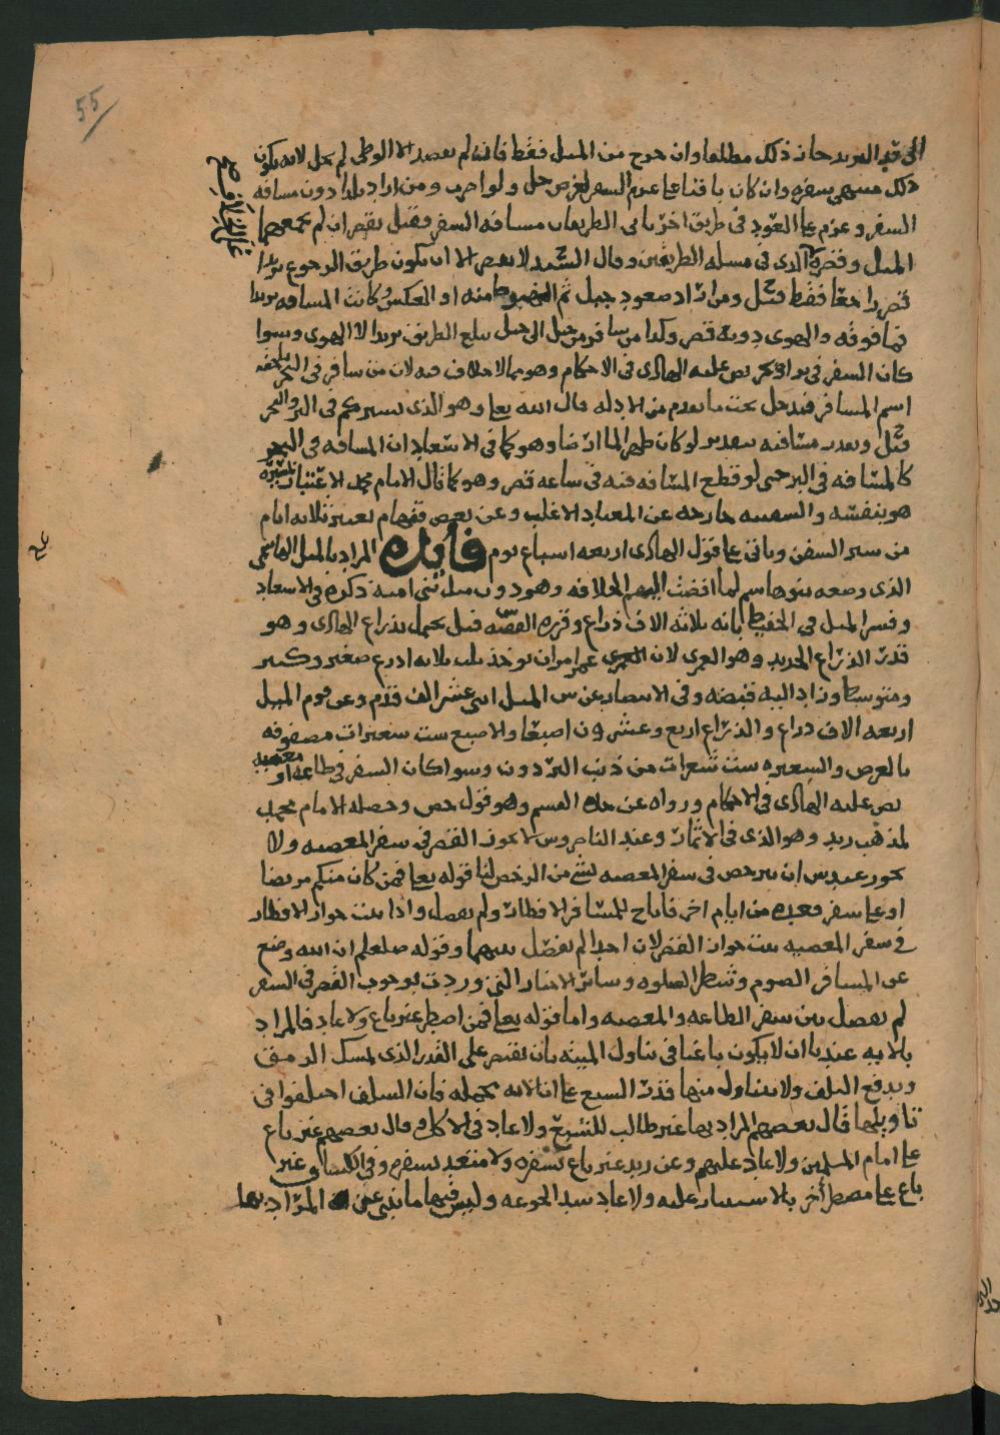 55
ذلك منتهى سفره وان كان باقيا على عزم السفر لغرض حل ولو احر ومن اراد بلدا دون مسافه
السفر وعزم على العود في طريق اخر ياتي الطريقان مسافه السفر فقيل يقصر ان لم يجمعهما
الميل وقصره الذي في مسله الطريقين وقال السيد لا يقصر الا ان يكون طريق الرجوع بريدا
قصر راجعا فقط قيل ومن اراد صعود جبل ثم الهبوط منه او العكس وكانت المسافه بريدا
فما فوقه والهوى دونه قصر وكذا من سافر من جبل الى جبل يبلغ الطريق بريدا لا الهوى وسوا
كان السفر في بر او بحر نص عليه الهادي في الاحكام وهو مما لا خلاف فيه لان من سافر في البحر يلحقه
اسم المسافر فيدخل تحت ما تقدم من الادله قال الله تعا وهو الذي يسيركم في البر والبحر
قيل ويقدر مسافته بتقدير لو كان ظهر الما ارضا وهو كما في الانتصار ان المسافه في البحر
كالمسافه في البر حتى لو قطع المسافه فيه في ساعه قصر وهو كما قال الامام محمد لا اعتبار بسيره
هو بنفسه والسفينه خارجه عن المعتاد الاغلب وعن بعض فقهاهم يعتبر ثلاثه ايام
من سير السفن وياتي على قول الهادي اربعه اسباع يوم فايده المراد بالميل الهاشمي
الذي وضعه بنو هاشم لما افضت اليهم الخلافه وهو دون ميل بني اميه ذكره في الانتصار
وفسر الميل في الحفيظ بانه ثلاثه الاف ذراع وقرره الفقيه س قيل يحمل بذراع الهادي وهو
قدر الذراع الحديد وهو العمري لان العمري عمر امر ان يوخذ ثلث ثلاثه اذرع صغير وكبير
ومتوسط وزاد اليه قبضه وفي الانتصار عن س الميل اثنى عشر الف قدم وعن قوم الميل
اربعه الاف ذراع والذراع اربع وعشرون اصبعا والاصبع ست شعيرات مصفوفه
بالعرض والشعيره ست شعرات من ذنب البرذون وسوا كان السفر في طاعه او معصيه
نص عليه الهادي في الاحكام ورواه عن جده القسم وهو قول حص وحصله الامام محمد
لمذهب زيد وهو الذي في الاثمار وعند الناصر وس لا يجوز القصر في سفر المعصيه ولا
يجوز عند س ان يترخص في سفر المعصيه بشي من الرخص لنا قوله تعا فمن كان منكم مريضا
او على سفر فعده من ايام اخر فاباح للمسافر الافطار ولم يفصل واذا ثبت جواز الافطار
في سفر المعصيه ثبت جواز القصر لان احدا لم يفصل بينهما وقوله صلعلم ان الله وضع
عن المسافر الصوم وشطر الصلوه وساير الاخبار التي وردت بوجوب القصر في السفر
لم يفصل بين سفر الطاعه والمعصيه واما قوله تعا فمن اضطر غير باغ ولا عاد فالمراد
بالايه عندنا ان لا يكون باغيا في تناول الميته بان يقتصر على القدر الذي يمسك الرمق
ويدفع التلف ولا يتناول منها قدر الشبع على ان الايه محتمله فان السلف اختلفوا في
تاويلها قال بعضهم المراد بها غير طالب للشبع ولا عاد في الاكل وقال بعضهم غير باغ
على امام المسلمين ولا عاد عليهم وعن زيد غير باغ بسفره ولا متعد بسفره وفي الكشاف غير
باغ على مضطر آخر بالاستيثار عليه ولا عاد سد الجوعه وليس فيها ما ينبي عن المراد بها